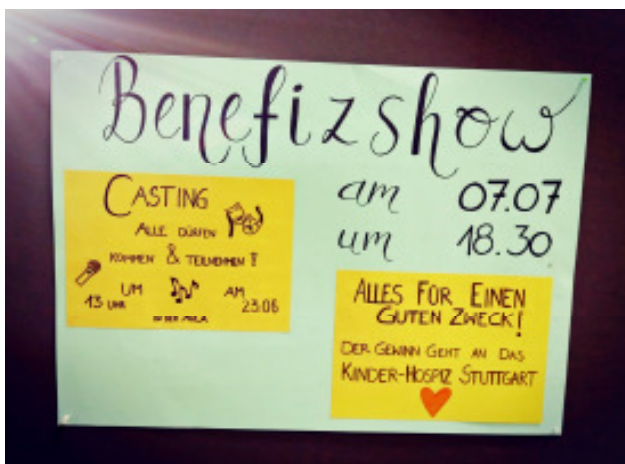 Benefizshow
am 07.07
um 18.30
CASTING
ALLE DÜRFEN
KOMMEN & TEILNEHMEN!
UM AM
13 UHR 23.06
IN DER AULA
ALLES FÜR EINEN
GUTEN ZWECK!
DER GEWINN GEHT AN DAS
KINDER-HOSPIZ STUTTGART